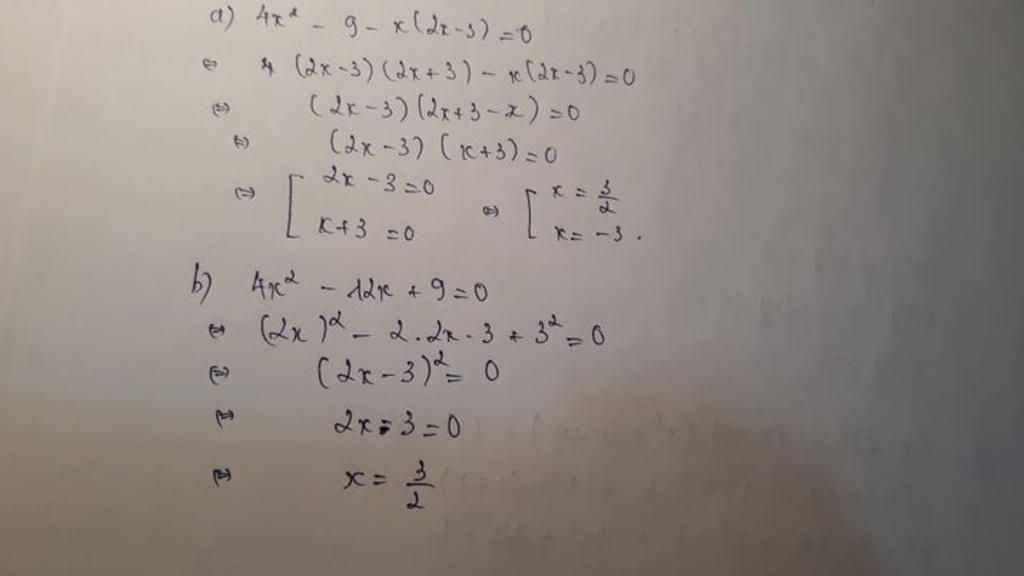 a) 4x² - 9 - x(2x-3) = 0
⇔ (2x-3)(2x+3) - x(2x-3) = 0
⇔ (2x-3)(2x+3-x) = 0
⇔ (2x-3)(x+3) = 0
⇔ [ 2x-3=0 ⇔ [ x = 3/2
x+3 = 0 x = -3.
b) 4x² - 12x + 9 = 0
⇔ (2x)² - 2.2x.3 + 3² = 0
⇔ (2x-3)² = 0
⇔ 2x-3 = 0
⇔ x = 3/2